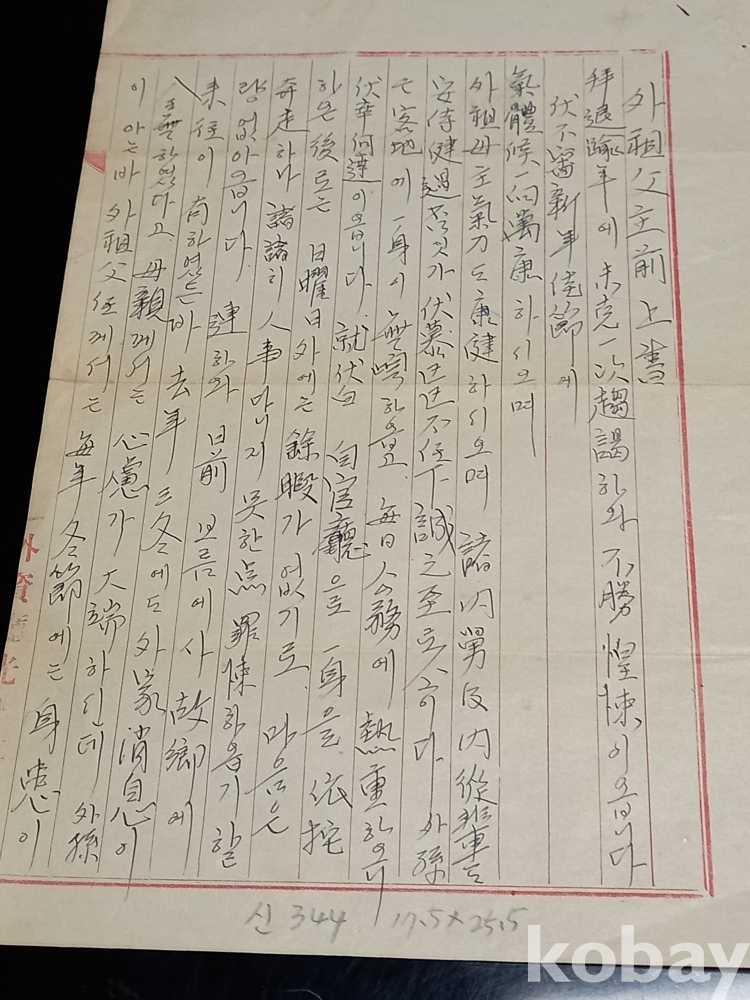 外祖父主前上書
拜退踰年에 未克一次趨謁하와 不勝惶悚이옵니다
伏不審新年佳節에
氣體候一向萬康하시오며
外祖母主氣力도 康健하시오며 諸內舅及內從班輩도
安侍健過하옵신가 伏慕 不任下誠之至로소이다 外孫
은 客地에 一身이 無 하옵고 每日公務에 熱重하오니
伏幸何達이옵니다 就伏白 自官廳으로 一身을 依托
하온 後로는 日曜日外에는 餘暇가 없기로 마음은
奔走하나 諸諸히 人事 못한 点 罪悚하옵기 할
량 없아옵니다. 하와 日前 보름에사 故鄕에
未往이 하였든바 去年 三冬에도 外家消息이
無하였다고 母親께서는 心慮가 大端하신데 外孫
이 아는바 外祖父任께서는 每年 冬節에는 身患이
外資
신 344 17.5×25.5
kobay